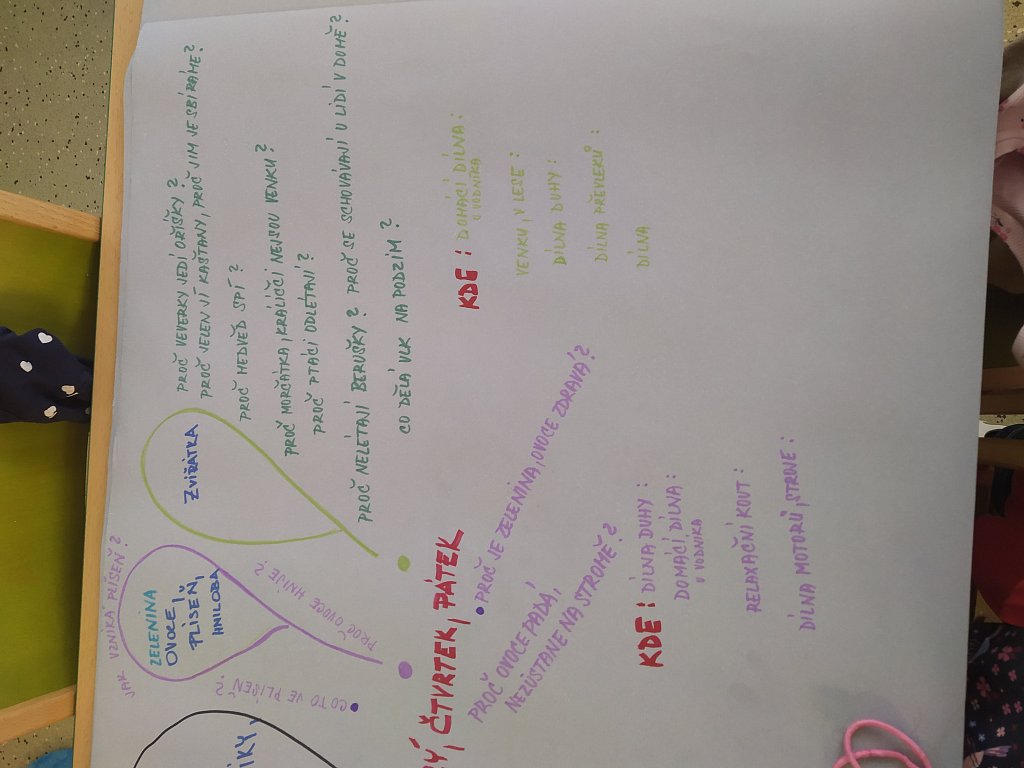 ÍKY,
ZELENINA
OVOCE,
PLÍSEŇ,
HNILOBA
JAK VZNIKÁ PLÍSEŇ?
CO TO VE PLÍSEŇ?
PROČ OVOCE HNIJE?
ZVÍŘÁTKA
PROČ VEVERKY JEDÍ OŘÍŠKY?
PROČ JELENÍ KAŠTANY, PROČ JIM JE SBÍRÁME?
PROČ MEDVĚD SPÍ?
PROČ MORČÁTKA, KRÁLÍČCI NEJSOU VENKU?
PROČ PTÁCI ODLÉTAJÍ?
PROČ NELÉTAJÍ BERUŠKY? PROČ SE SCHOVÁVAJÍ U LIDÍ V DOMĚ?
CO DĚLÁ VLK NA PODZIM?
Ý, ČTVRTEK, PÁTEK
PROČ JE ZELENINA, OVOCE ZDRAVÁ?
PROČ OVOCE PADÁ,
NEZŮSTANE NA STROMĚ?
KDE: DÍLNA DUHY:
DOMÁCÍ DÍLNA:
U VODNÍKA
RELAXAČNÍ KOUT:
DÍLNA MOTORŮ, STROJE:
KDE: DOMÁCÍ DÍLNA:
U VODNÍKA
VENKU, V LESE:
DÍLNA DUHY:
DÍLNA PŘEVLEKŮ:
DÍLNA